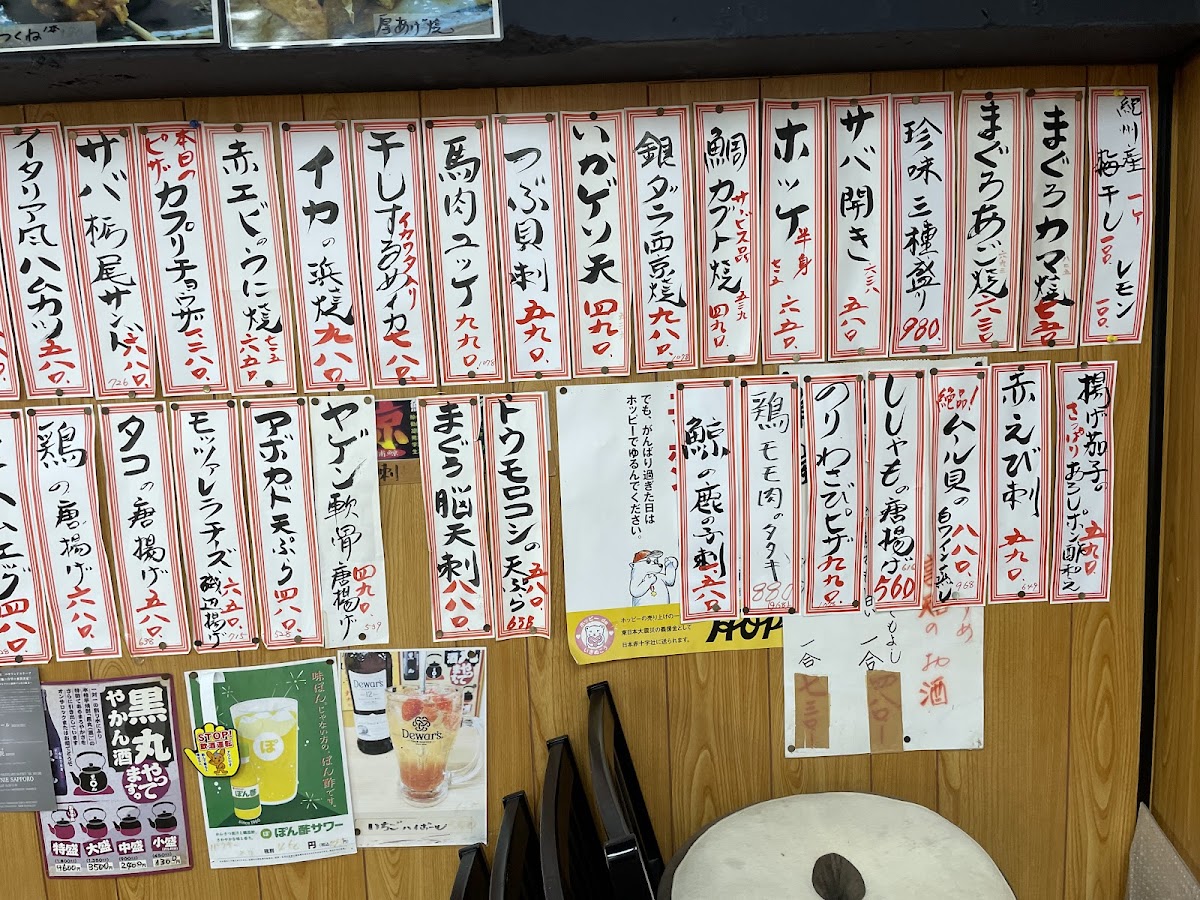 つくね
厚あげ焼
紀州産
梅干し
一ケ
一〇〇
レモン
一〇〇.
まぐろカマ焼
まぐろあご焼
珍味三種盛り
980.
サバ開き
六三八
五八〇
ホッケ
半身
七一五
六五〇.
鯛カブト焼
サービス品
五三九
四九〇.
銀ダラ西京焼
九八〇.
1078
いかゲソ天
四九〇.
つぶ貝刺
五九〇.
馬肉ユッケ
九九〇.
干しするめイカ
イカワタ入り
七八〇.
イカの浜焼
九八〇.
赤エビのうに焼
七一五
六五〇.
本日の
ピザ
カプリチョウザ
サバ栃尾サンド
六六〇.
726
イタリア風ハムカツ
五八〇.
揚げ茄子の
さっぱりおろしポン酢和え
五九〇.
赤えび刺
五九〇.
649
絶品!
ムール貝の
白ワイン蒸し
八八〇.
968
ししゃもの唐揚げ
616
560
のりわさびピザ
九九〇.
鶏モモ肉のタタキ
880
鯨の鹿の子刺
トウモロコシの天ぷら
五八〇.
638
まぐろ脳天刺
八八〇.
ヤゲン軟骨唐揚げ
四九〇.
539
アボカド天ぷら
四八〇.
528
モッツァレラチーズ磯辺揚げ
六五〇.
715
タコの唐揚げ
五八〇.
638
鶏の唐揚げ
六八〇.
四八〇.
でも、がんばり過ぎた日は
ホッピーでゆるんでください。
ホッピーの売り上げの一
東日本大震災の義援金として
日本赤十字社に送られます。
HOP
お酒
一合
四八〇
一合
七三〇
黒丸
やかん酒
やってます。
特盛
大盛
中盛
小盛
4600円
3500円
2400円
1300円
STOP!
飲酒運転
味ぽん、じゃない方の、ぽん酢です。
ぽ
ぽん酢
ぽん酢サワー
円
Dewar's
12
Dewar's
いちごハイボール